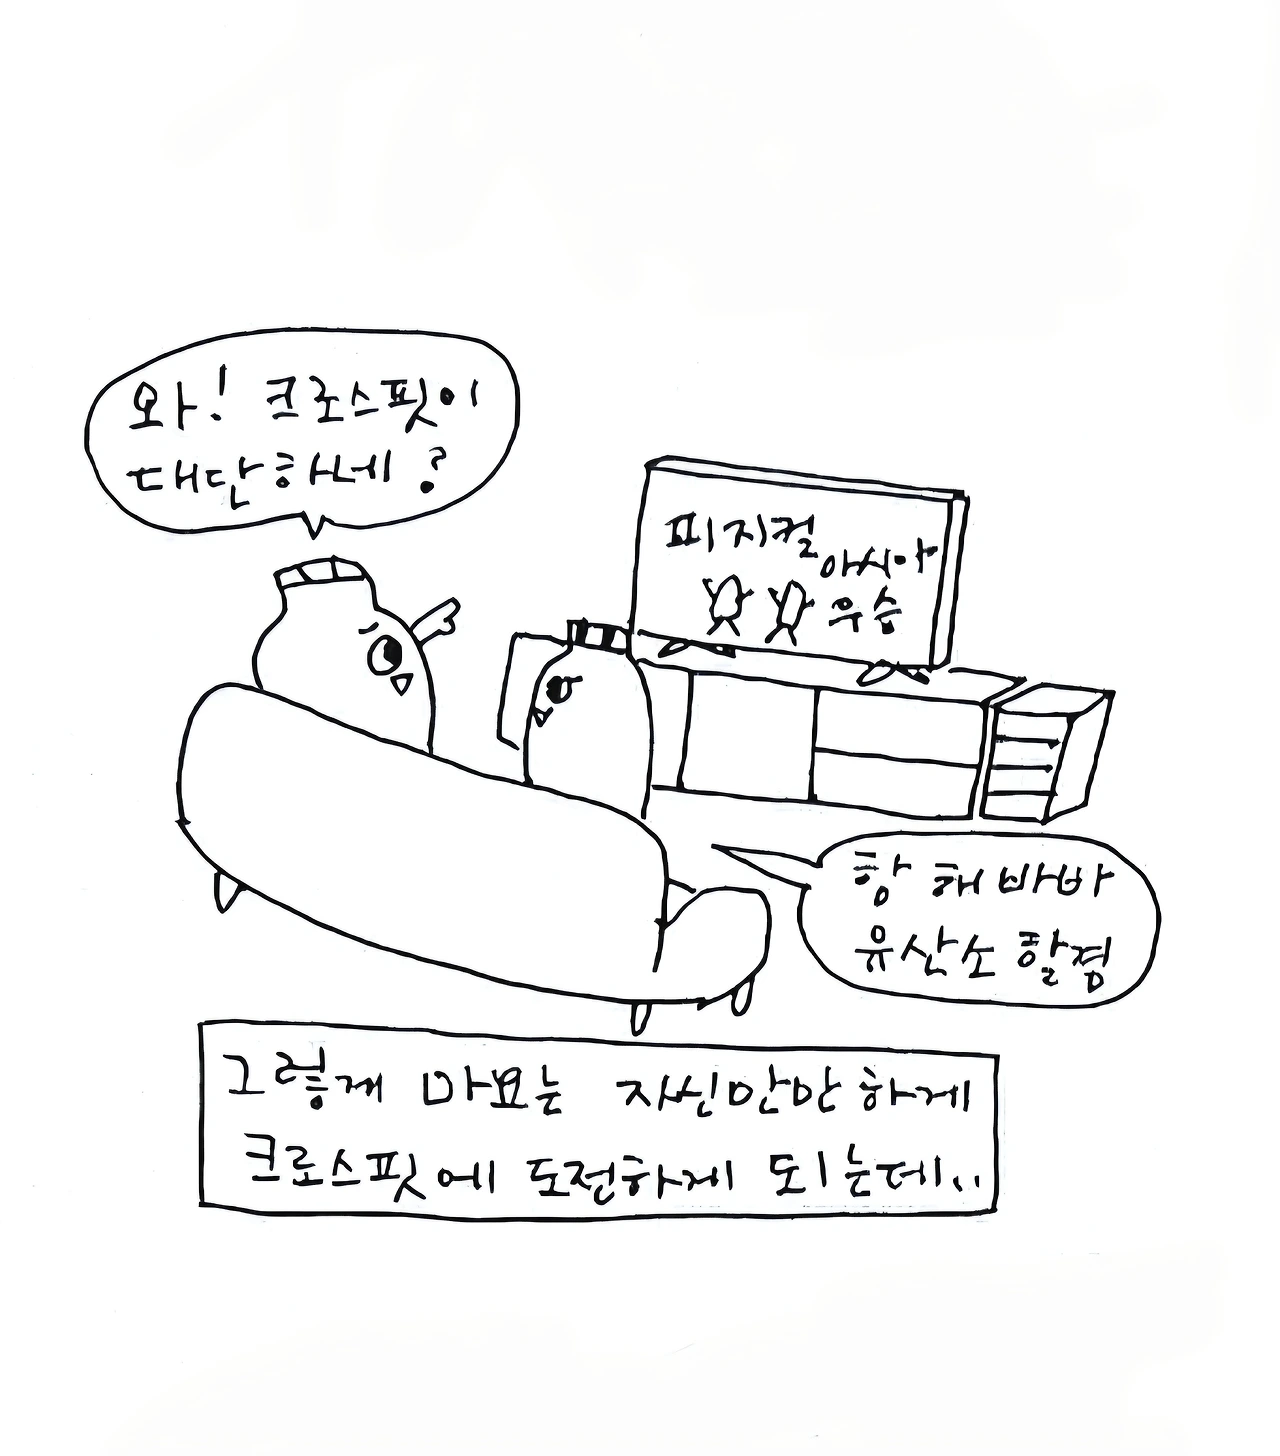 와! 크로스핏이
대단하네?
피지컬
아시아
우승
항 해봐봐
유산소 할겸
그렇게 마요는 자신만만하게
크로스핏에 도전하게 되는데..